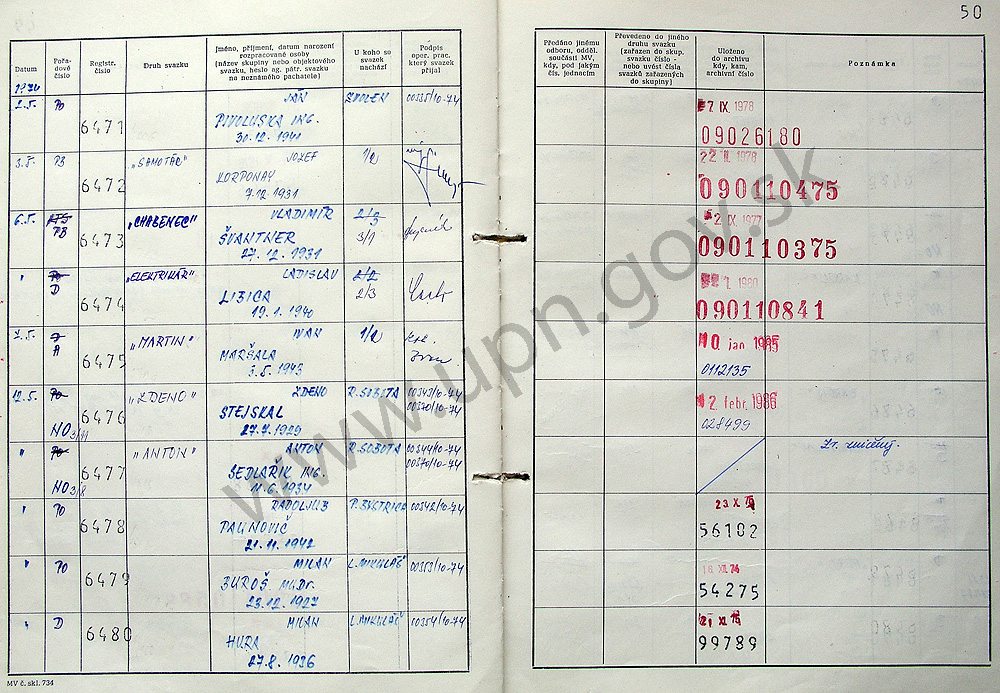 50
Datum
Pořa-
dové
číslo
Registr.
číslo
Druh svazku
Jméno, příjmení, datum narození
rozpracované osoby
(název skupiny nebo objektového
svazku, heslo ag. pátr. svazku
na neznámého pachatele)
U koho se
svazek
nachází
Podpis
oper. prac.
který svazek
přijal
Předáno jinému
odboru, odděl.
součásti MV,
kdy, pod jakým
čís. jednacím
Převedeno do jiného
druhu svazku
(zařazen do skup.
svazku číslo -
nebo uvést čísla
svazků zařazených
do skupiny)
Uloženo
do archivu
kdy, kam,
archivní číslo
Poznámka
1974
2.5. PO 6471 JÁN ZVOLEN 00335/10-74
PIVOLUSKA ING.
30.12.1941
7 IX. 1978
09026180
3.5. PB 6472 „SAMOTÁR" JOZEF 1/2
KORPONAY
7.12.1931
22 1978
090110475
6.5. KTS PB 6473 „CHABENEC" VLADIMÍR 2/3
ŠVANTNER 3/1
27.12.1931
2 IX. 1977
090110375
" PO D 6474 „ELEKTRIKÁR" LADISLAV 2/2
LIBICA 2/3
19.1.1940
1. 1980
090110841
7.5. A 6475 „MARTIN" IVAN 1/2
MARŠALA
3.5.1943
10 jan 1985
0112135
12.5. PO 6476 „ZDENO" ZDENO R. SOBOTA 00343/10-74
STEJSKAL 00370/10-74
NO 27.7.1929
12 febr. 1986
028499
" PO 6477 „ANTON" ANTON R. SOBOTA 00344/10-74
SEDLAŘIK ING. 00370/10-74
NO 3/8 11.6.1934
Zv. zničený.
" PO 6478 RADOLJUB P. BYSTRICA 00342/10-74
PAUNOVIČ
21.11.1942
23 X. 75
56102
" PO 6479 MILAN L. MIKULÁŠ 00353/10-74
BUROŠ MUDr.
23.12.1927
18 XI. 74
54275
" D 6480 MILAN L. MIKULÁŠ 00354/10-74
HURA
27.8.1936
21 XI. 75
99789
MV č. skl. 734
www.upn.gov.sk